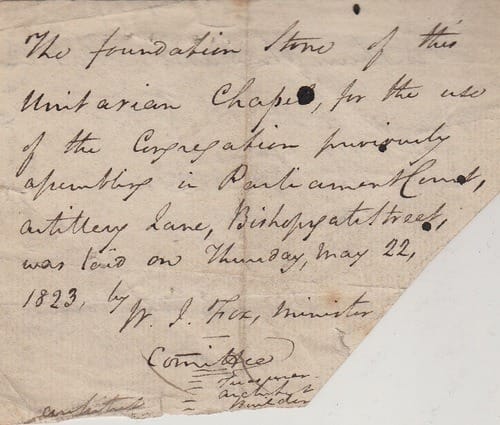 The foundation Stone of this
Unitarian Chapel, for the use
of the Congregation previously
assembling in Parliament Court,
artillery Lane, Bishopsgate Street,
was laid on Thursday, May 22,
1823, by
W. J. Fox, Minister
Comittee
Treasurer
Architect
Builder